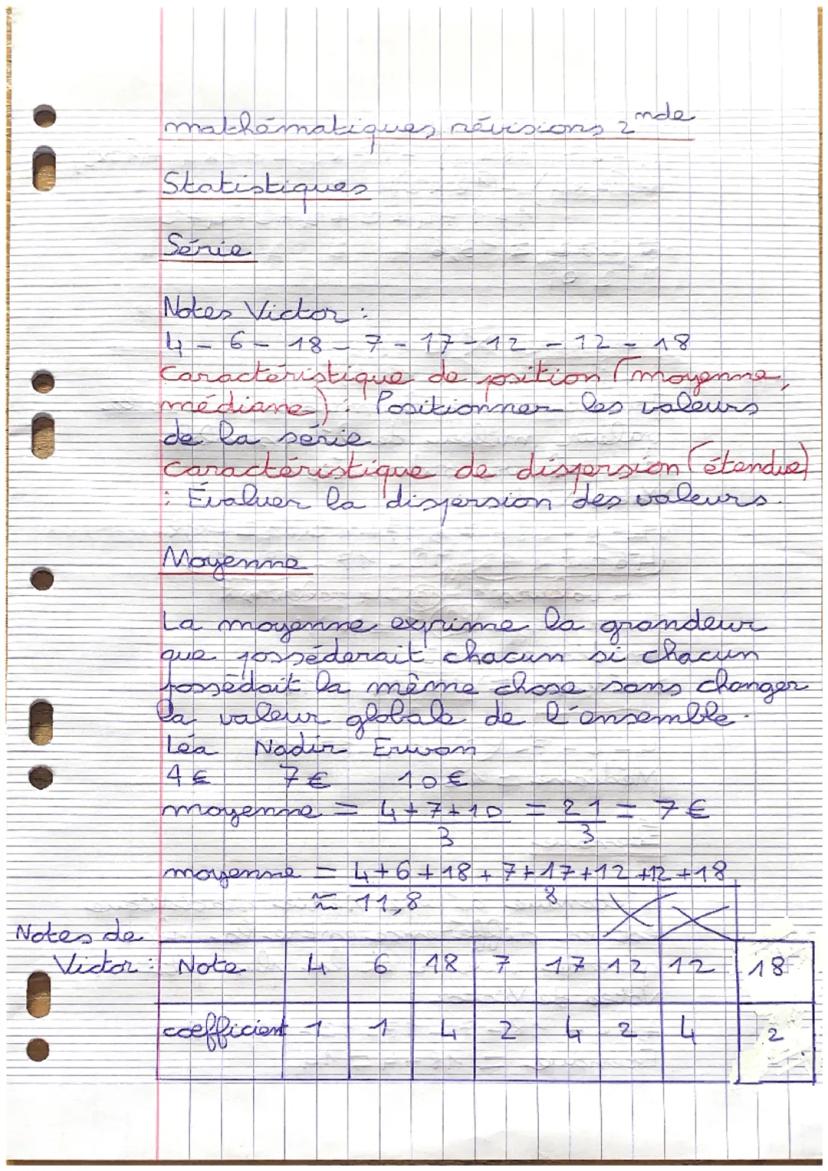 mathématiques révisions 2nde
Statistiques
Série
Notes Victor :
4 - 6 - 18 - 7 - 17 - 12 - 12 - 18
Caractéristique de position (moyenne,
médiane) : Positionner les valeurs
de la série
caractéristique de dispersion (étendue)
: Évaluer la dispersion des valeurs.
Moyenne
La moyenne exprime la grandeur
que posséderait chacun si chacun
possédait la même chose sans changer
la valeur globale de l'ensemble.
Léa Nadir Erwan
4 € 7 € 10 €
moyenne = (4+7+10)/3 = 21/3 = 7 €
moyenne = (4+6+18+7+17+12+12+18)/8
≈ 11,8
Notes de
Victor : Note 4 6 18 7 17 12 12 18
coefficient 1 1 4 2 4 2 4 2